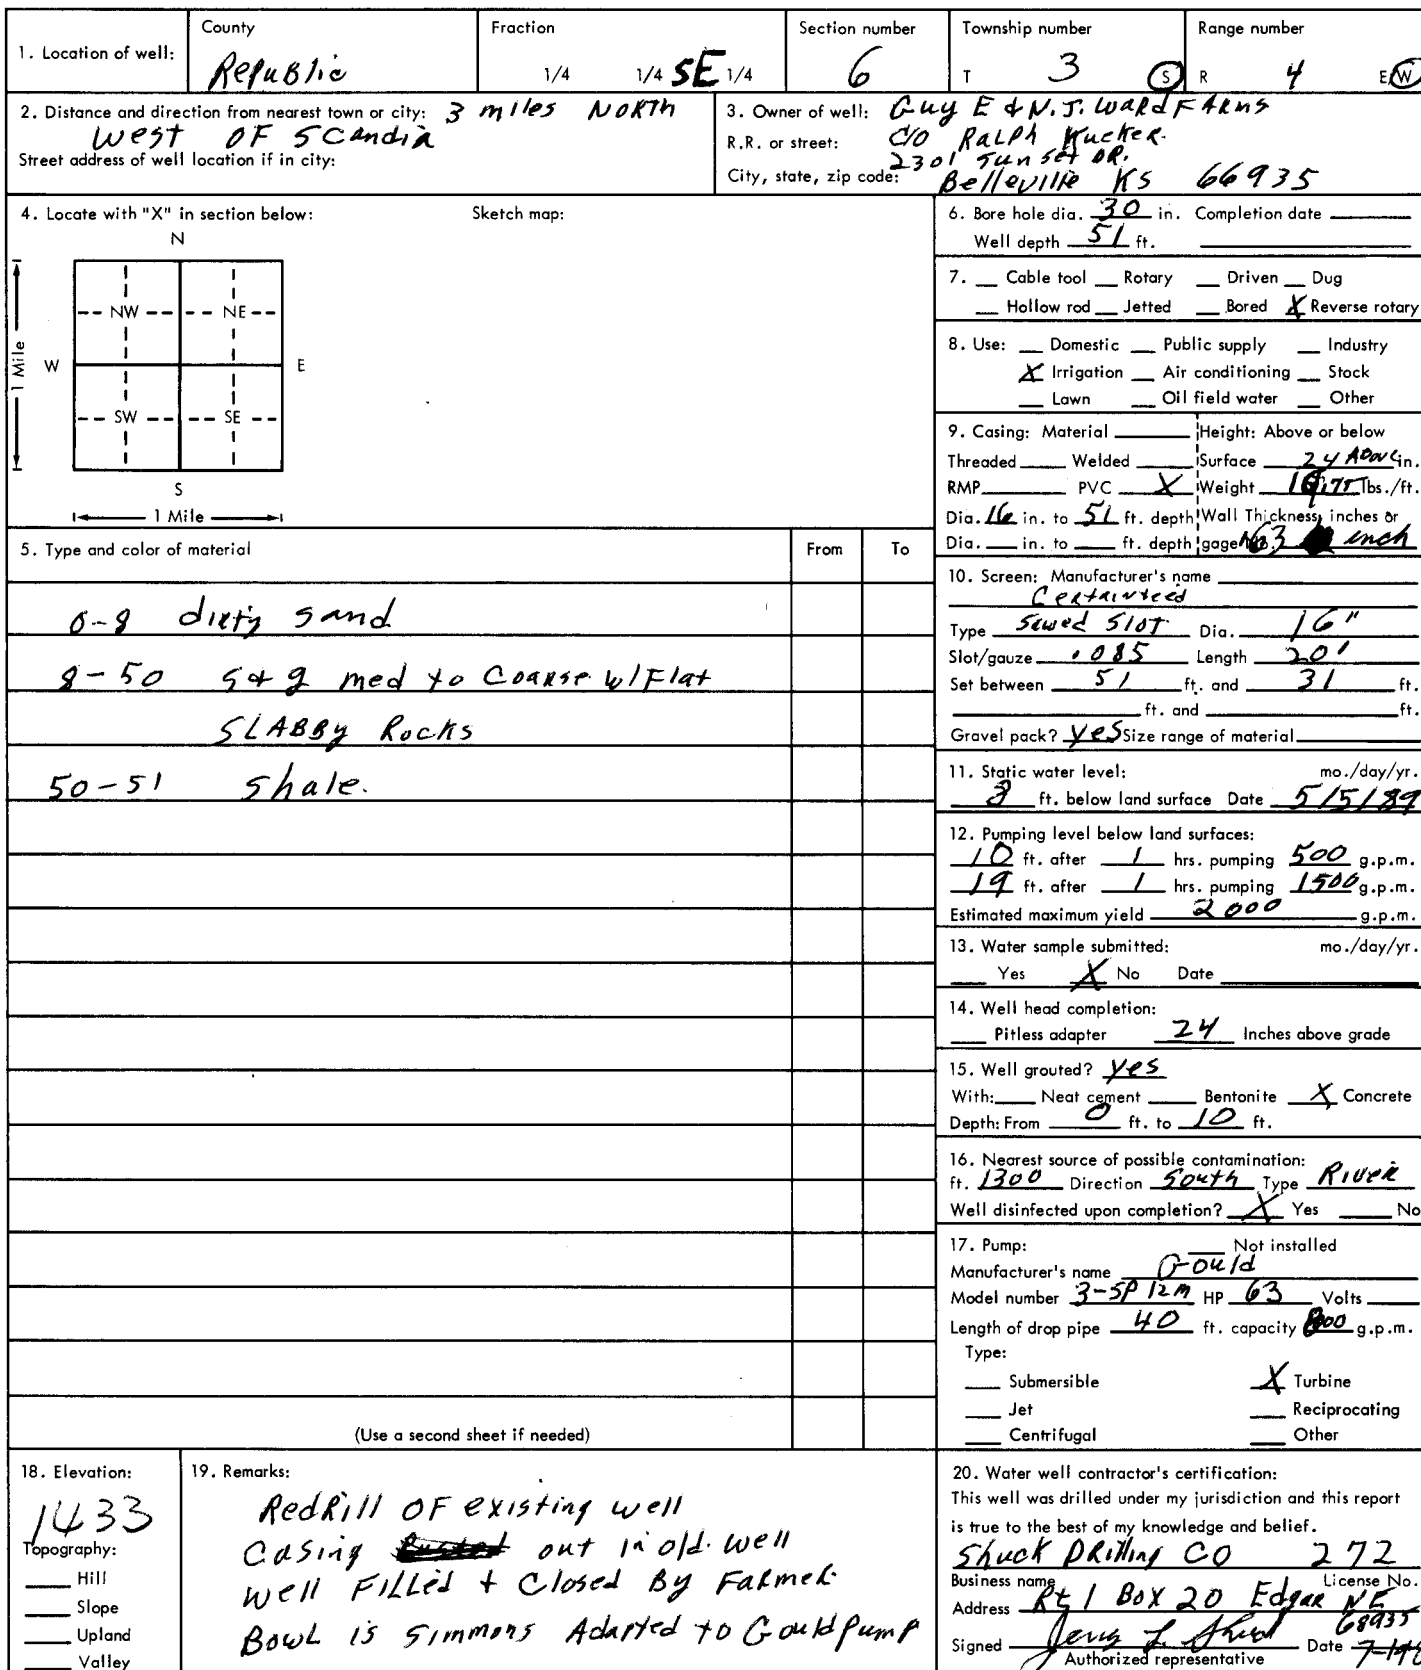 1. Location of well: County Republic Fraction 1/4 1/4 SE 1/4 Section number 6 Township number T 3 S Range number R 4 E/W
2. Distance and direction from nearest town or city: 3 miles NORTH
West OF SCandia
Street address of well location if in city:
3. Owner of well: Guy E & N.J. Ward FARms
R.R. or street: C/O RALPH Kucker.
2301 Sunset DR.
City, state, zip code: Belleville KS 66935
4. Locate with "X" in section below: Sketch map:
N
NW NE
W E
1 Mile
SW SE
S
1 Mile
5. Type and color of material From To
0-8 dirty sand
8-50 s & g med to Coarse w/Flat
SLABBy Rocks
50-51 shale.
(Use a second sheet if needed)
6. Bore hole dia. 30 in. Completion date
Well depth 51 ft.
7. Cable tool Rotary Driven Dug
Hollow rod Jetted Bored X Reverse rotary
8. Use: Domestic Public supply Industry
X Irrigation Air conditioning Stock
Lawn Oil field water Other
9. Casing: Material Height: Above or below
Threaded Welded Surface 24 Above in.
RMP PVC X Weight lbs./ft.
Dia. 16 in. to 51 ft. depth Wall Thickness, inches or
Dia. in. to ft. depth gage No. inch
10. Screen: Manufacturer's name
Certainteed
Type Sawed Slot Dia. 16"
Slot/gauze .085 Length 20'
Set between 51 ft. and 31 ft.
ft. and ft.
Gravel pack? yes Size range of material
11. Static water level: mo./day/yr.
ft. below land surface Date 5/5/89
12. Pumping level below land surfaces:
10 ft. after 1 hrs. pumping 500 g.p.m.
19 ft. after 1 hrs. pumping 1500 g.p.m.
Estimated maximum yield 2000 g.p.m.
13. Water sample submitted: mo./day/yr.
Yes X No Date
14. Well head completion:
Pitless adapter 24 Inches above grade
15. Well grouted? yes
With: Neat cement Bentonite X Concrete
Depth: From 0 ft. to 10 ft.
16. Nearest source of possible contamination:
ft. 1300 Direction South Type River
Well disinfected upon completion? X Yes No
17. Pump: Not installed
Manufacturer's name Gould
Model number 3-5P 12M HP 63 Volts
Length of drop pipe 40 ft. capacity 800 g.p.m.
Type:
Submersible X Turbine
Jet Reciprocating
Centrifugal Other
18. Elevation:
1433
Topography:
Hill
Slope
Upland
Valley
19. Remarks:
Redrill OF existing well
Casing out in old well
Well Filled + Closed By Farmer.
Bowl is Simmons Adapted to Gould Pump
20. Water well contractor's certification:
This well was drilled under my jurisdiction and this report
is true to the best of my knowledge and belief.
Shuck Drilling CO 272
Business name License No.
Address Rt 1 Box 20 Edgar NE
68935
Signed Date
Authorized representative